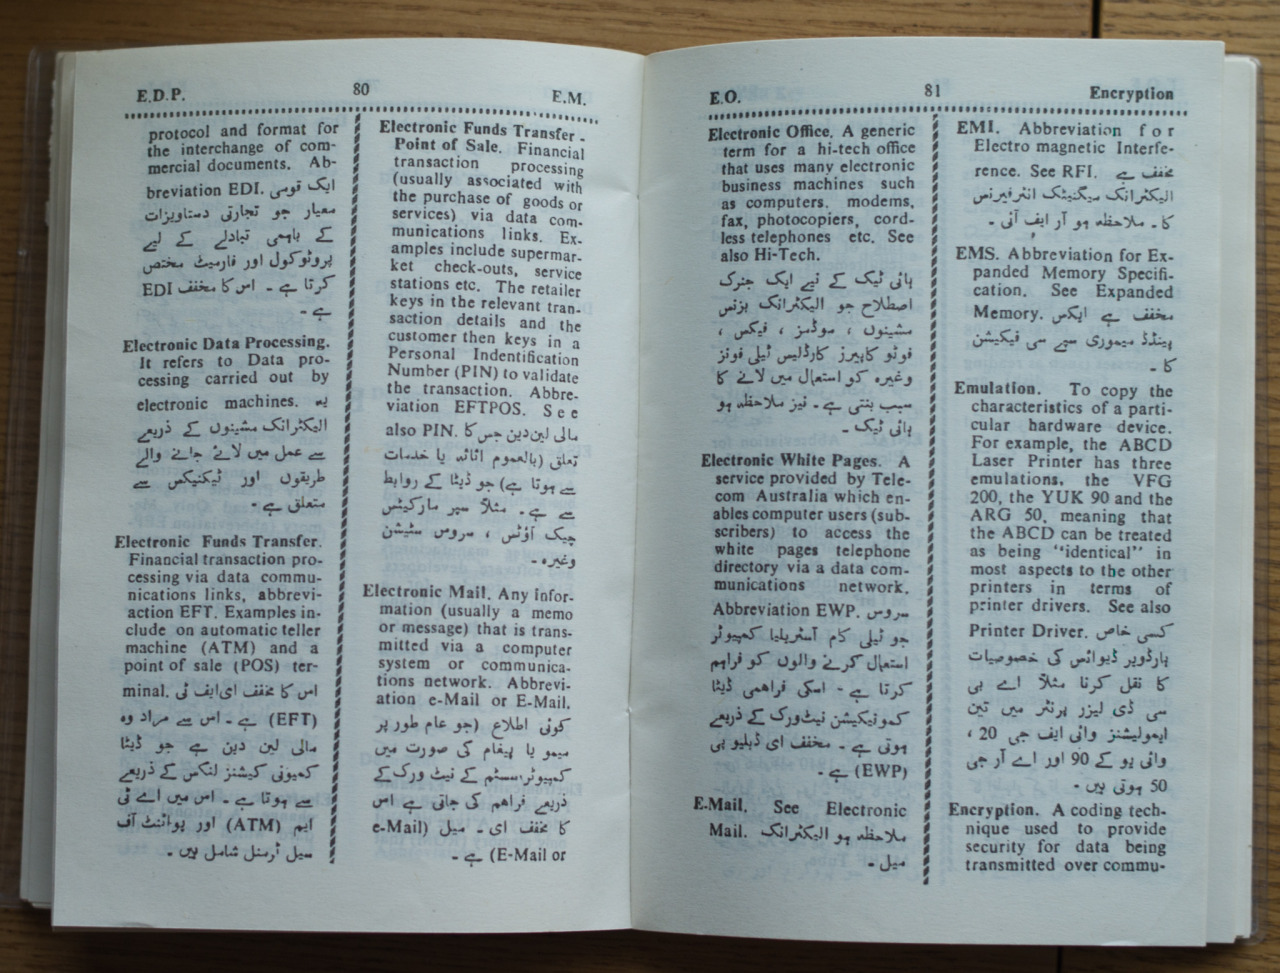 E.D.P.
80
E.M.
protocol and format for
the interchange of com-
mercial documents. Ab-
breviation EDI. ایک قومی
معیار جو تجارتی دستاویزات
کے باہمی تبادلے کے لیے
پروٹوکول اور فارمیٹ مختص
کرتا ہے ۔ اس کا مخفف EDI
ہے ۔
Electronic Data Processing.
It refers to Data pro-
cessing carried out by
electronic machines. یہ
الیکٹرانک مشینوں کے ذریعے
سے عمل میں لائے جانے والے
طریقوں اور ٹیکنیکس سے
متعلق ہے ۔
Electronic Funds Transfer.
Financial transaction pro-
cessing via data commu-
nications links, abbrevi-
action EFT. Examples in-
clude on automatic teller
machine (ATM) and a
point of sale (POS) ter-
minal. اس کا مخفف ای ایف ٹی
(EFT) ہے ۔ اس سے مراد وہ
مالی لین دین ہے جو ڈیٹا
کمیونی کیشنز لنکس کے ذریعے
سے ہوتا ہے ۔ اس میں اے ٹی
ایم (ATM) اور پوائنٹ آف
سیل ٹرمنل شامل ہیں ۔
Electronic Funds Transfer -
Point of Sale. Financial
transaction processing
(usually associated with
the purchase of goods or
services) via data com-
munications links. Ex-
amples include supermar-
ket check-outs, service
stations etc. The retailer
keys in the relevant tran-
saction details and the
customer then keys in a
Personal Indentification
Number (PIN) to validate
the transaction. Abbre-
viation EFTPOS. See
also PIN. مالی لین دین جس کا
تعلق (بالعموم اثاثہ یا خدمات
سے ہوتا ہے) جو ڈیٹا کے روابط
سے ہے ۔ مثلاً سپر مارکیٹس
چیک آؤٹس ، سروس سٹیشن
وغیرہ ۔
Electronic Mail. Any infor-
mation (usually a memo
or message) that is trans-
mitted via a computer
system or communica-
tions network. Abbrevi-
ation e-Mail or E-Mail.
کوئی اطلاع (جو عام طور پر
میمو یا پیغام کی صورت میں
کمپیوٹر سسٹم کے نیٹ ورک کے
ذریعے فراہم کی جاتی ہے اس
کا مخفف ای ۔ میل (e-Mail
E-Mail or) ہے ۔
E.O.
81
Encryption
Electronic Office. A generic
term for a hi-tech office
that uses many electronic
business machines such
as computers. modems,
fax, photocopiers, cord-
less telephones etc. See
also Hi-Tech.
ہائی ٹیک کے لیے ایک جنرک
اصطلاح جو الیکٹرانک بزنس
مشینوں ، موڈمز ، فیکس ،
فوٹو کاپیرز کارڈلیس ٹیلی فونز
وغیرہ کو استعمال میں لانے کا
سبب بنتی ہے ۔ نیز ملاحظہ ہو
ہائی ٹیک ۔
Electronic White Pages. A
service provided by Tele-
com Australia which en-
ables computer users (sub-
scribers) to access the
white pages telephone
directory via a data com-
munications network.
Abbreviation EWP. سروس
جو ٹیلی کام آسٹریلیا کمپیوٹر
استعمال کرنے والوں کو فراہم
کرتا ہے ۔ اسکی فراہمی ڈیٹا
کمونیکیشن نیٹ ورک کے ذریعے
ہوتی ہے ۔ مخفف ای ڈبلیو پی
(EWP) ہے ۔
E-Mail. See Electronic
Mail. ملاحظہ ہو الیکٹرانک
میل ۔
EMI. Abbreviation for
Electro magnetic Interfe-
rence. See RFI. مخفف ہے
الیکٹرانک میگنیٹک انٹرفیرنس
کا ۔ ملاحظہ ہو آر ایف آئی ۔
EMS. Abbreviation for Ex-
panded Memory Specifi-
cation. See Expanded
Memory. مخفف ہے ایکس
پینڈڈ میموری سپے سی فیکیشن
کا ۔
Emulation. To copy the
characteristics of a parti-
cular hardware device.
For example, the ABCD
Laser Printer has three
emulations, the VFG
200, the YUK 90 and the
ARG 50, meaning that
the ABCD can be treated
as being "identical" in
most aspects to the other
printers in terms of
printer drivers. See also
Printer Driver. کسی خاص
ہارڈویر ڈیوائس کی خصوصیات
کا نقل کرنا مثلاً اے بی
سی ڈی لیزر پرنٹر میں تین
ایمولیشنز وائی ایف جی 20 ،
وائی یو کے 90 اور اے آر جی
50 ہوتی ہیں ۔
Encryption. A coding tech-
nique used to provide
security for data being
transmitted over commu-